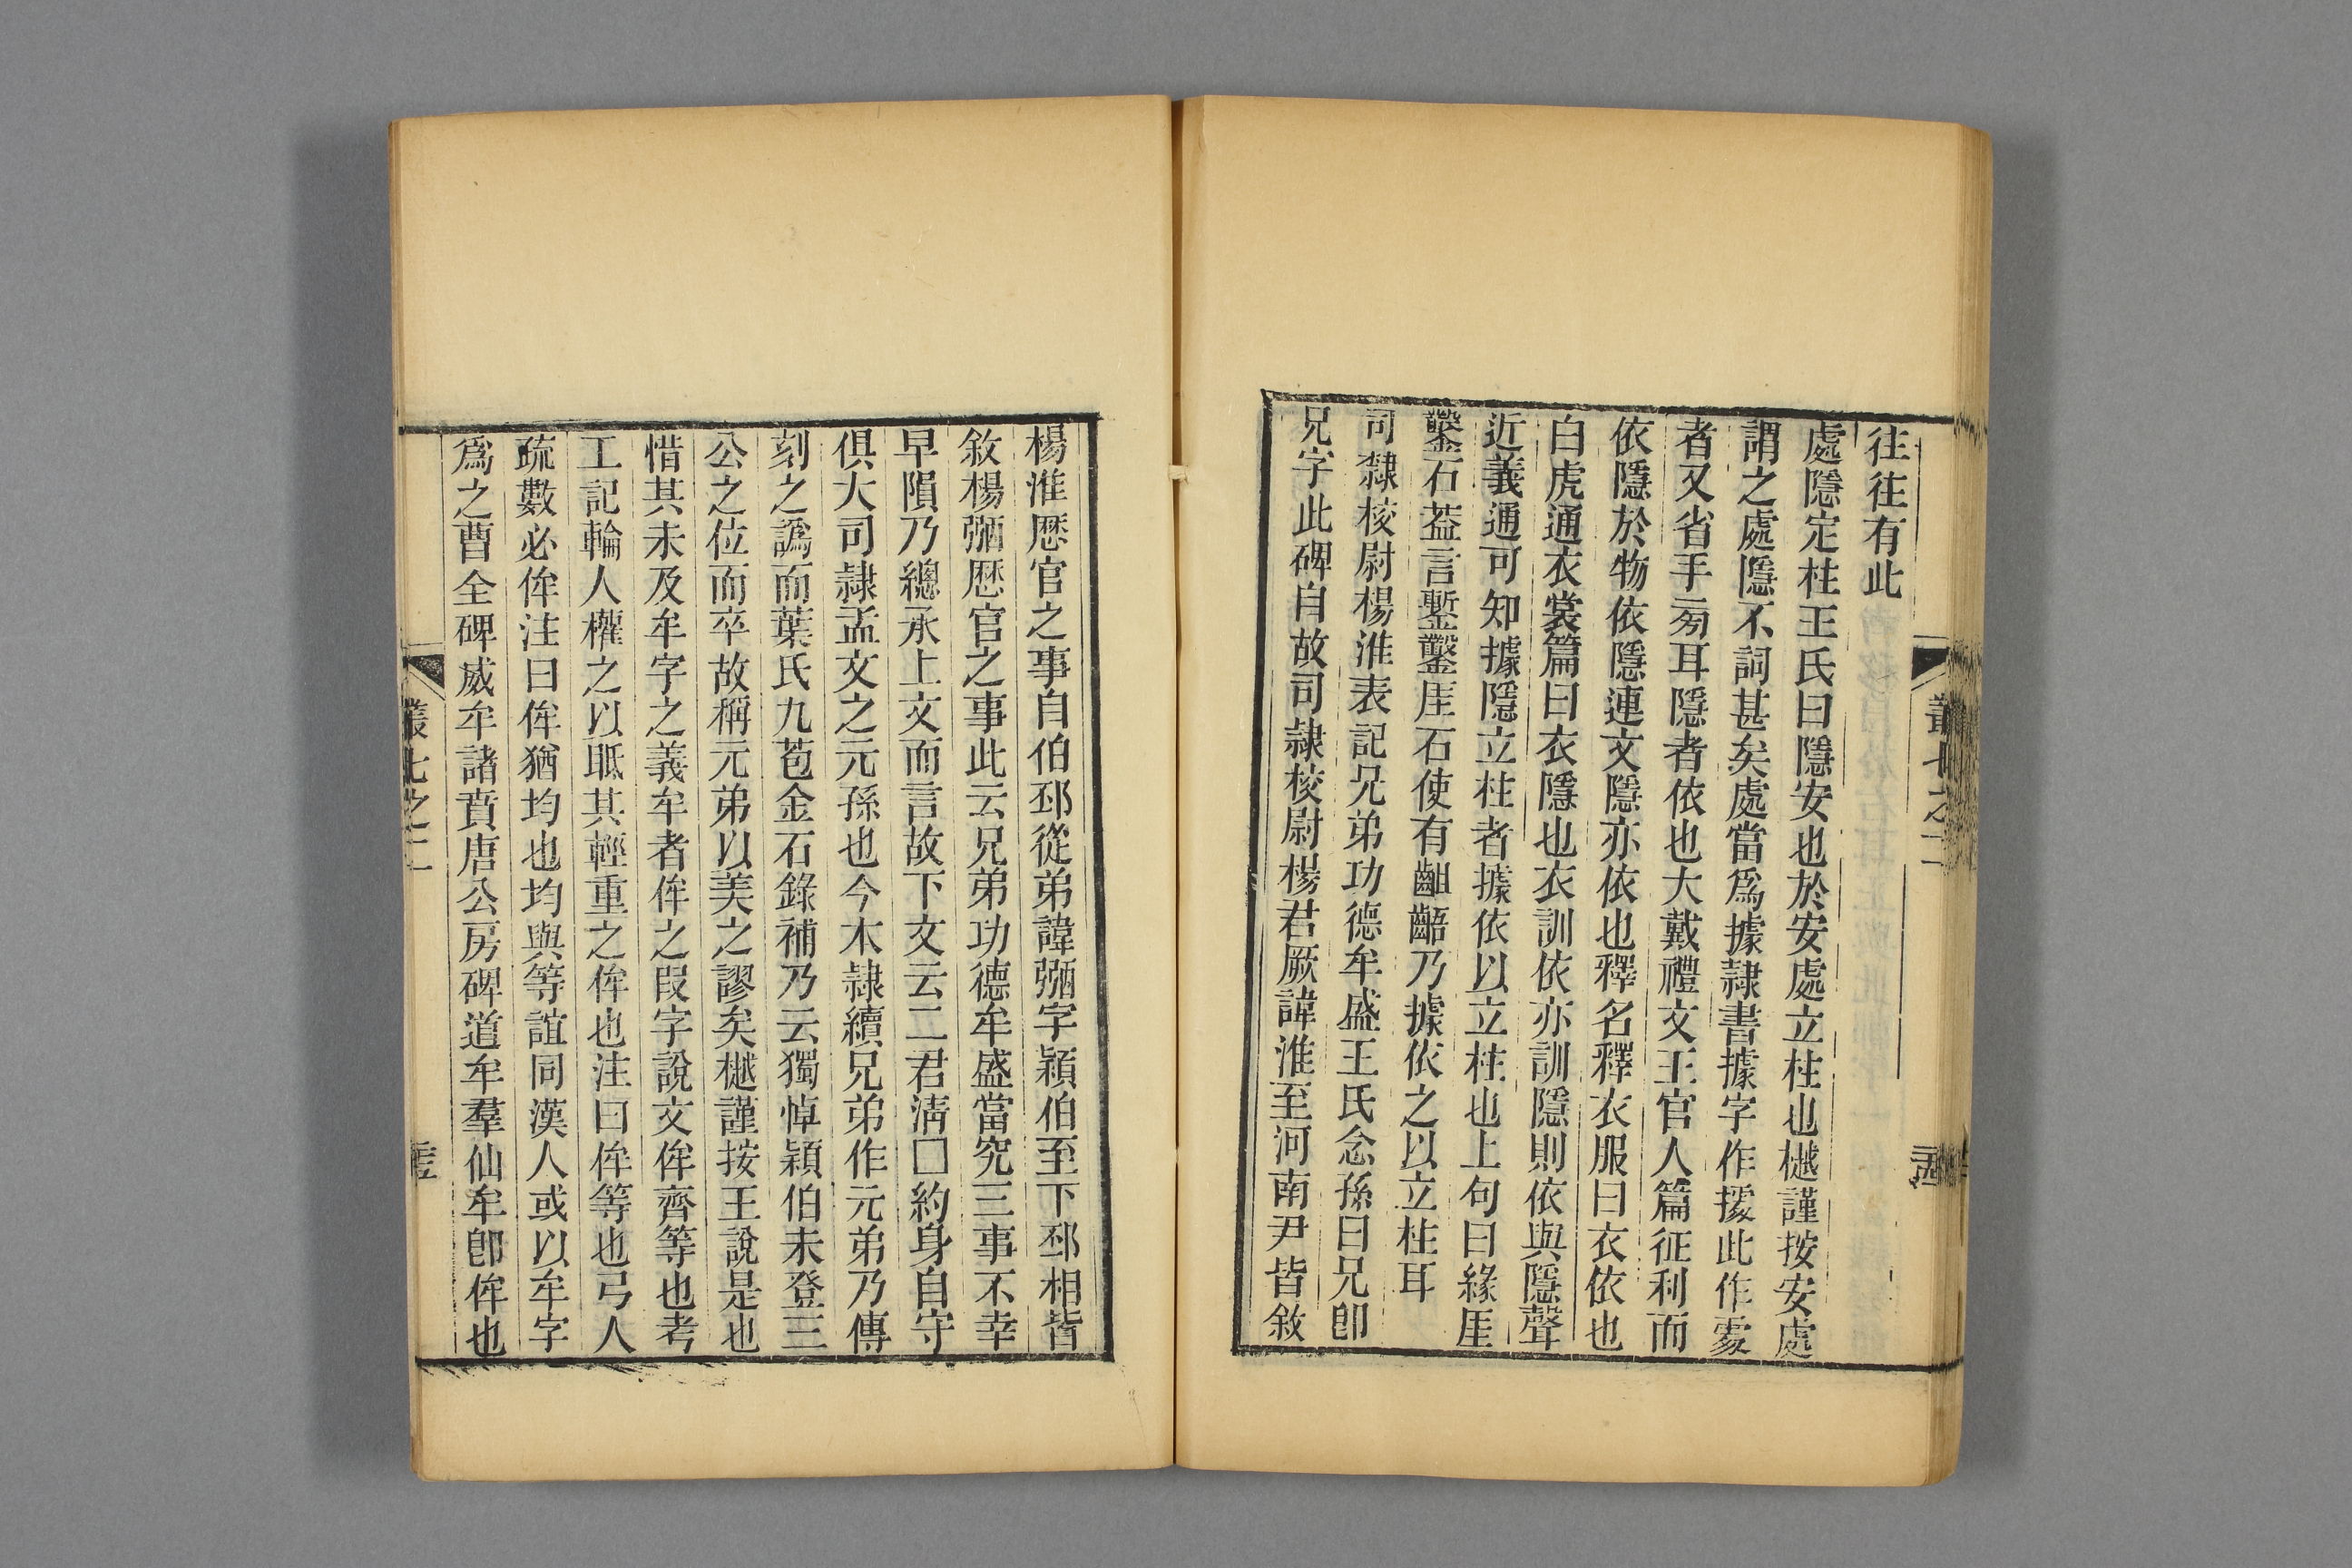 往往有此
處隱定柱王氏曰隱安也於安處立柱也樾謹按安處
謂之處隱不詞甚矣處當爲據隸書據字作㨿此作䖏
者又省手㫄耳隱者依也大戴禮文王官人篇征利而
依隱於物依隱連文隱亦依也釋名釋衣服曰衣依也
白虎通衣裳篇曰衣隱也衣訓依亦訓隱則依與隱聲
近義通可知據隱立柱者據依以立柱也上句曰緣厓
鑿石葢言鏨鑿厓石使有齟齬乃據依之以立柱耳
司隸校尉楊淮表記兄弟功德牟盛王氏念孫曰兄卽
兄字此碑自故司隸校尉楊君厥諱淮至河南尹皆敘
楊淮歷官之事自伯邳從弟諱弻字穎伯至下邳相皆
敘楊弻歷官之事此云兄弟功德牟盛當究三事不幸
早隕乃總承上文而言故下文云二君淸□約身自守
俱大司隸孟文之元孫也今木隸續兄弟作元弟乃傳
刻之譌而葉氏九苞金石錄補乃云獨悼穎伯未登三
公之位而卒故稱元弟以美之謬矣樾謹按王說是也
惜其未及牟字之義牟者侔之叚字說文侔齊等也考
工記輪人權之以眡其輕重之侔也注曰侔等也弓人
疏數必侔注曰侔猶均也均與等誼同漢人或以牟字
爲之曹全碑威牟諸賁唐公房碑道牟羣仙牟卽侔也
叢七之二